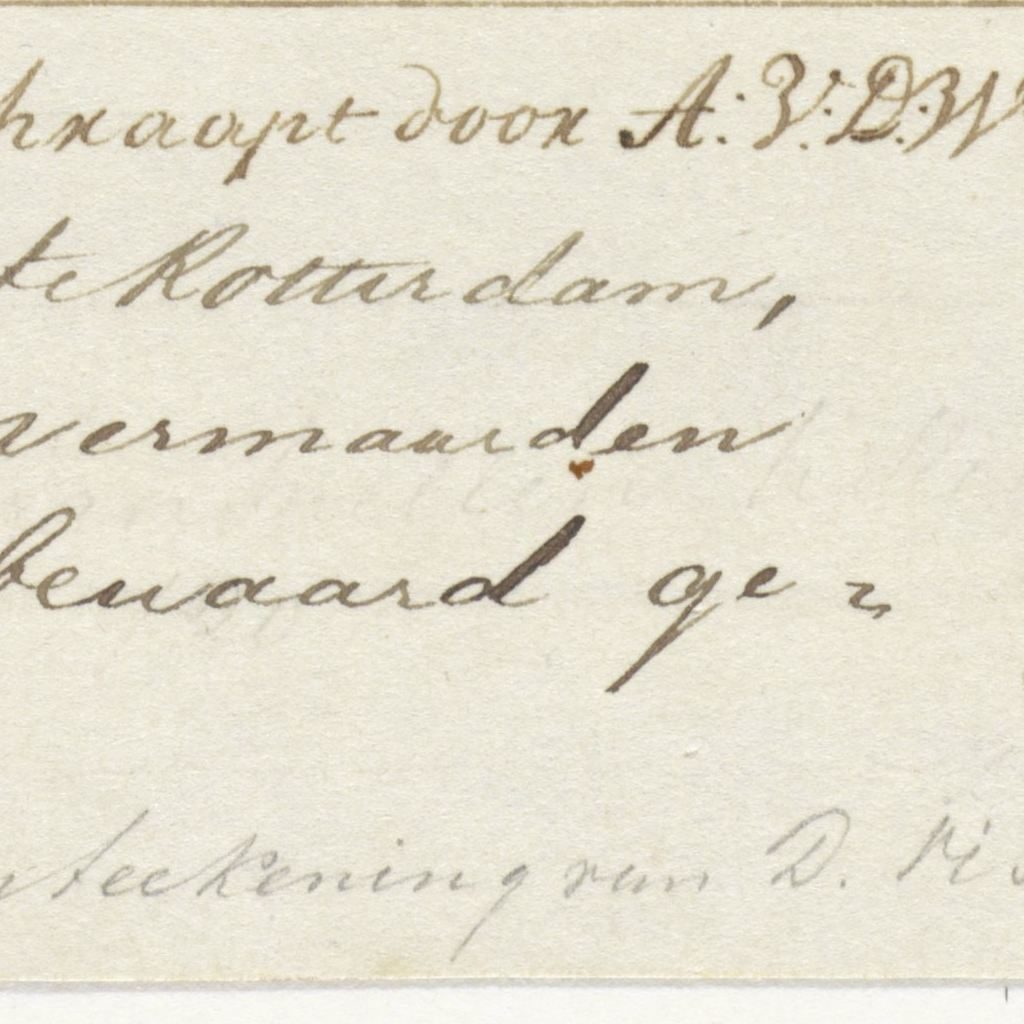 hraapt door A: V: D: W
te Rotterdam,
vermaarden
bewaard ge =
teekening van D. Vis